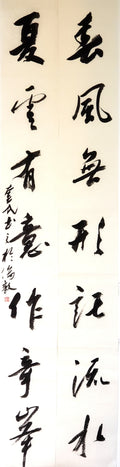 春風無形託流水
夏雲有意作奇峯